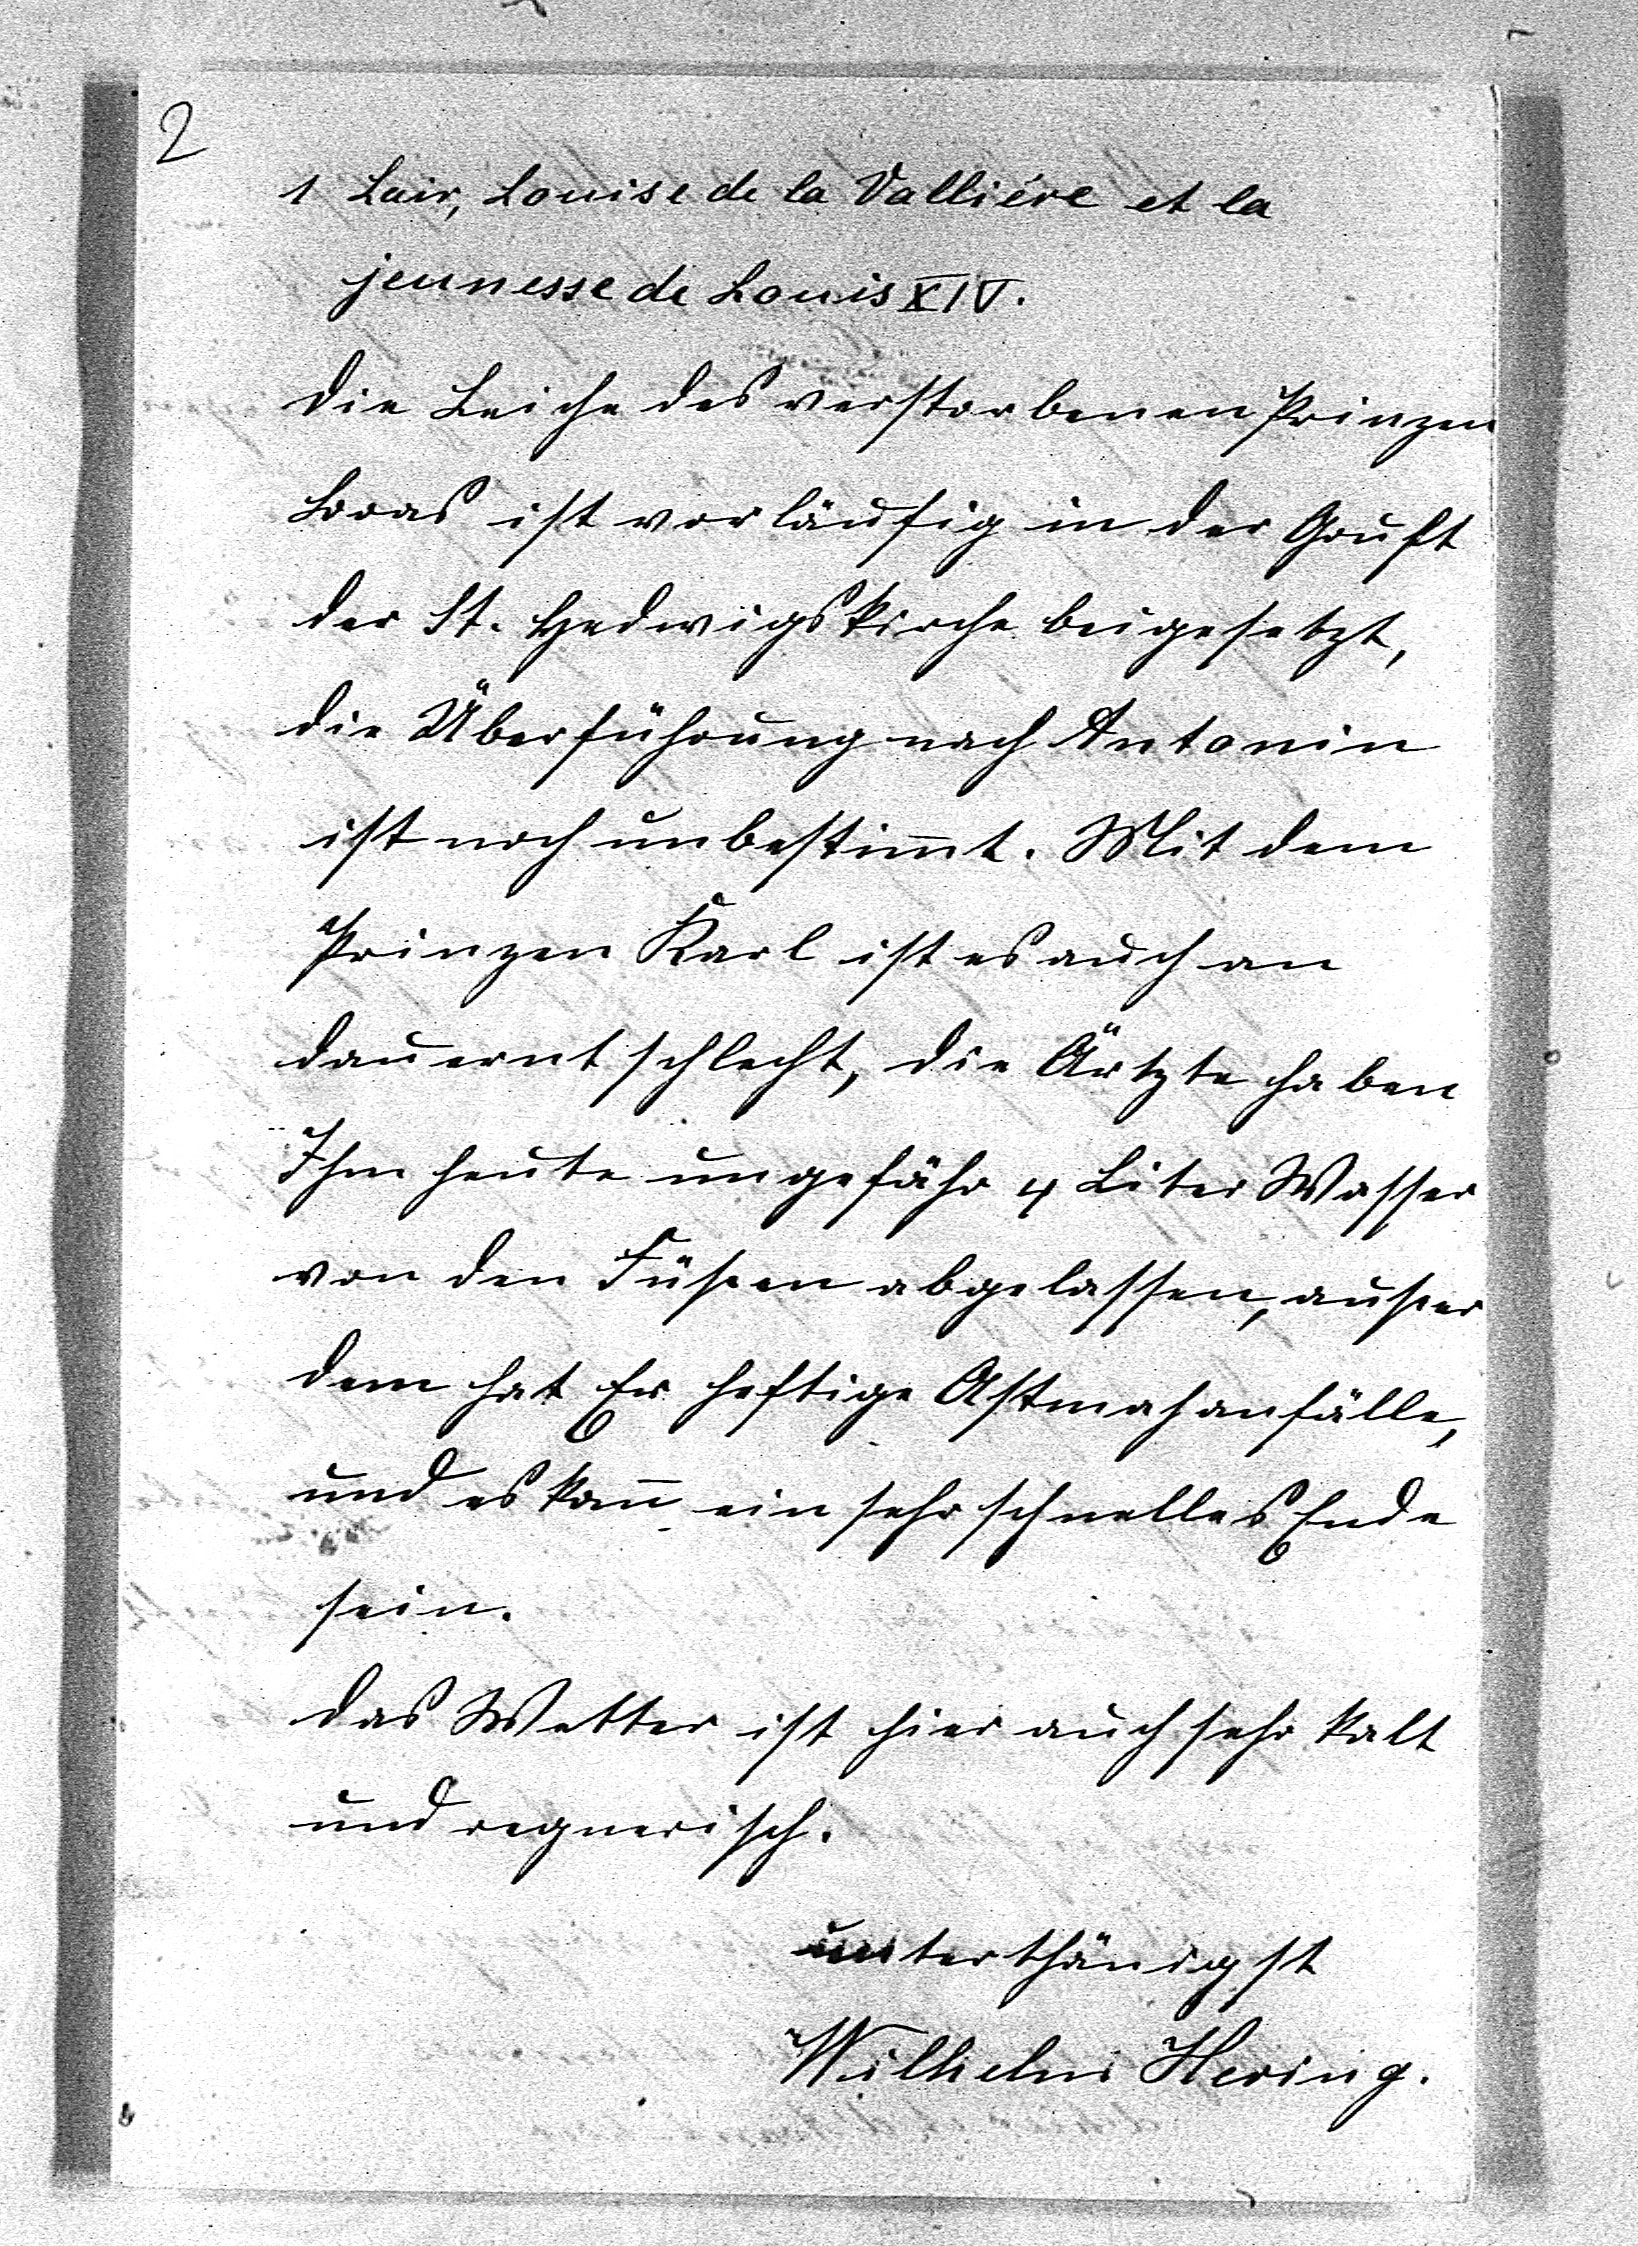 2
1 Lair, Louise de la Valliére et la
jeunesse de Louis XIV.
Die Leiche des verstorbenen Prinzen
ist vorläufig in der Gruft
der St. Hedwigskirche beigesetzt,
die Überführung nach Antonin
ist noch unbestim̅t. Mit dem
Prinzen Karl ist es auch an
dauernt schlecht, die Ärtzte haben
Ihm heute ungefähr 4 Liter Wasser
von den Füßen abgelassen, außer
dem hat Er heftige Astmahanfälle,
und es kan̅ ein sehr schnelles Ende
sein.
Das Wetter ist hier auch sehr kalt
und regnerisch.
unterthänigst
Wilhelm Hering.